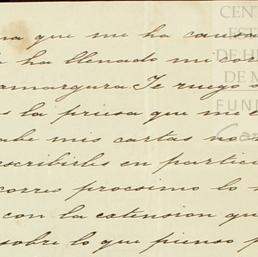 na que me ha causa
ha llenado mi cor
amargura. Te ruego
s la priesa que me
abe mis cartas no
scribirles en particu
corres procsimo lo
con la estension qu
sobre lo que pienso p
CENT
EST
DE H
DE M
FUND
Ca